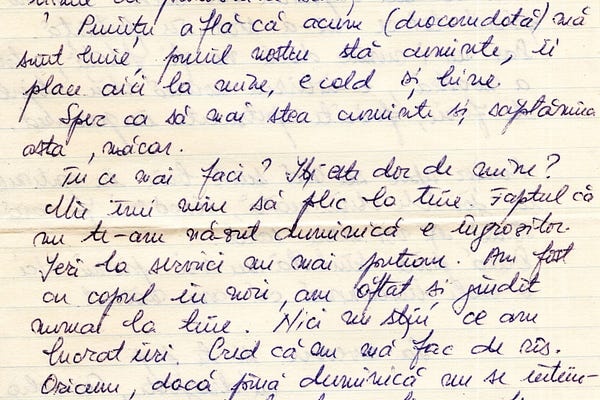 Puiuțu află că acum (deocamdată) mă
simt bine, puiul nostru stă cuminte, îi
place aici la mine, e cald și bine.
Sper ca să mai stea cuminte și săptămîna
asta, măcar.
Tu ce mai faci? Îți este dor de mine?
Mie îmi vine să plec la tine. Faptul că
nu te-am văzut duminică e îngrozitor.
Ieri la servici nu mai puteam. Am fost
cu capul în nori, am oftat și gîndit
numai la tine. Nici nu știu ce am
lucrat ieri. Cred că am mă fac de rîs.
Oricum, dacă pînă duminică nu se întîm-